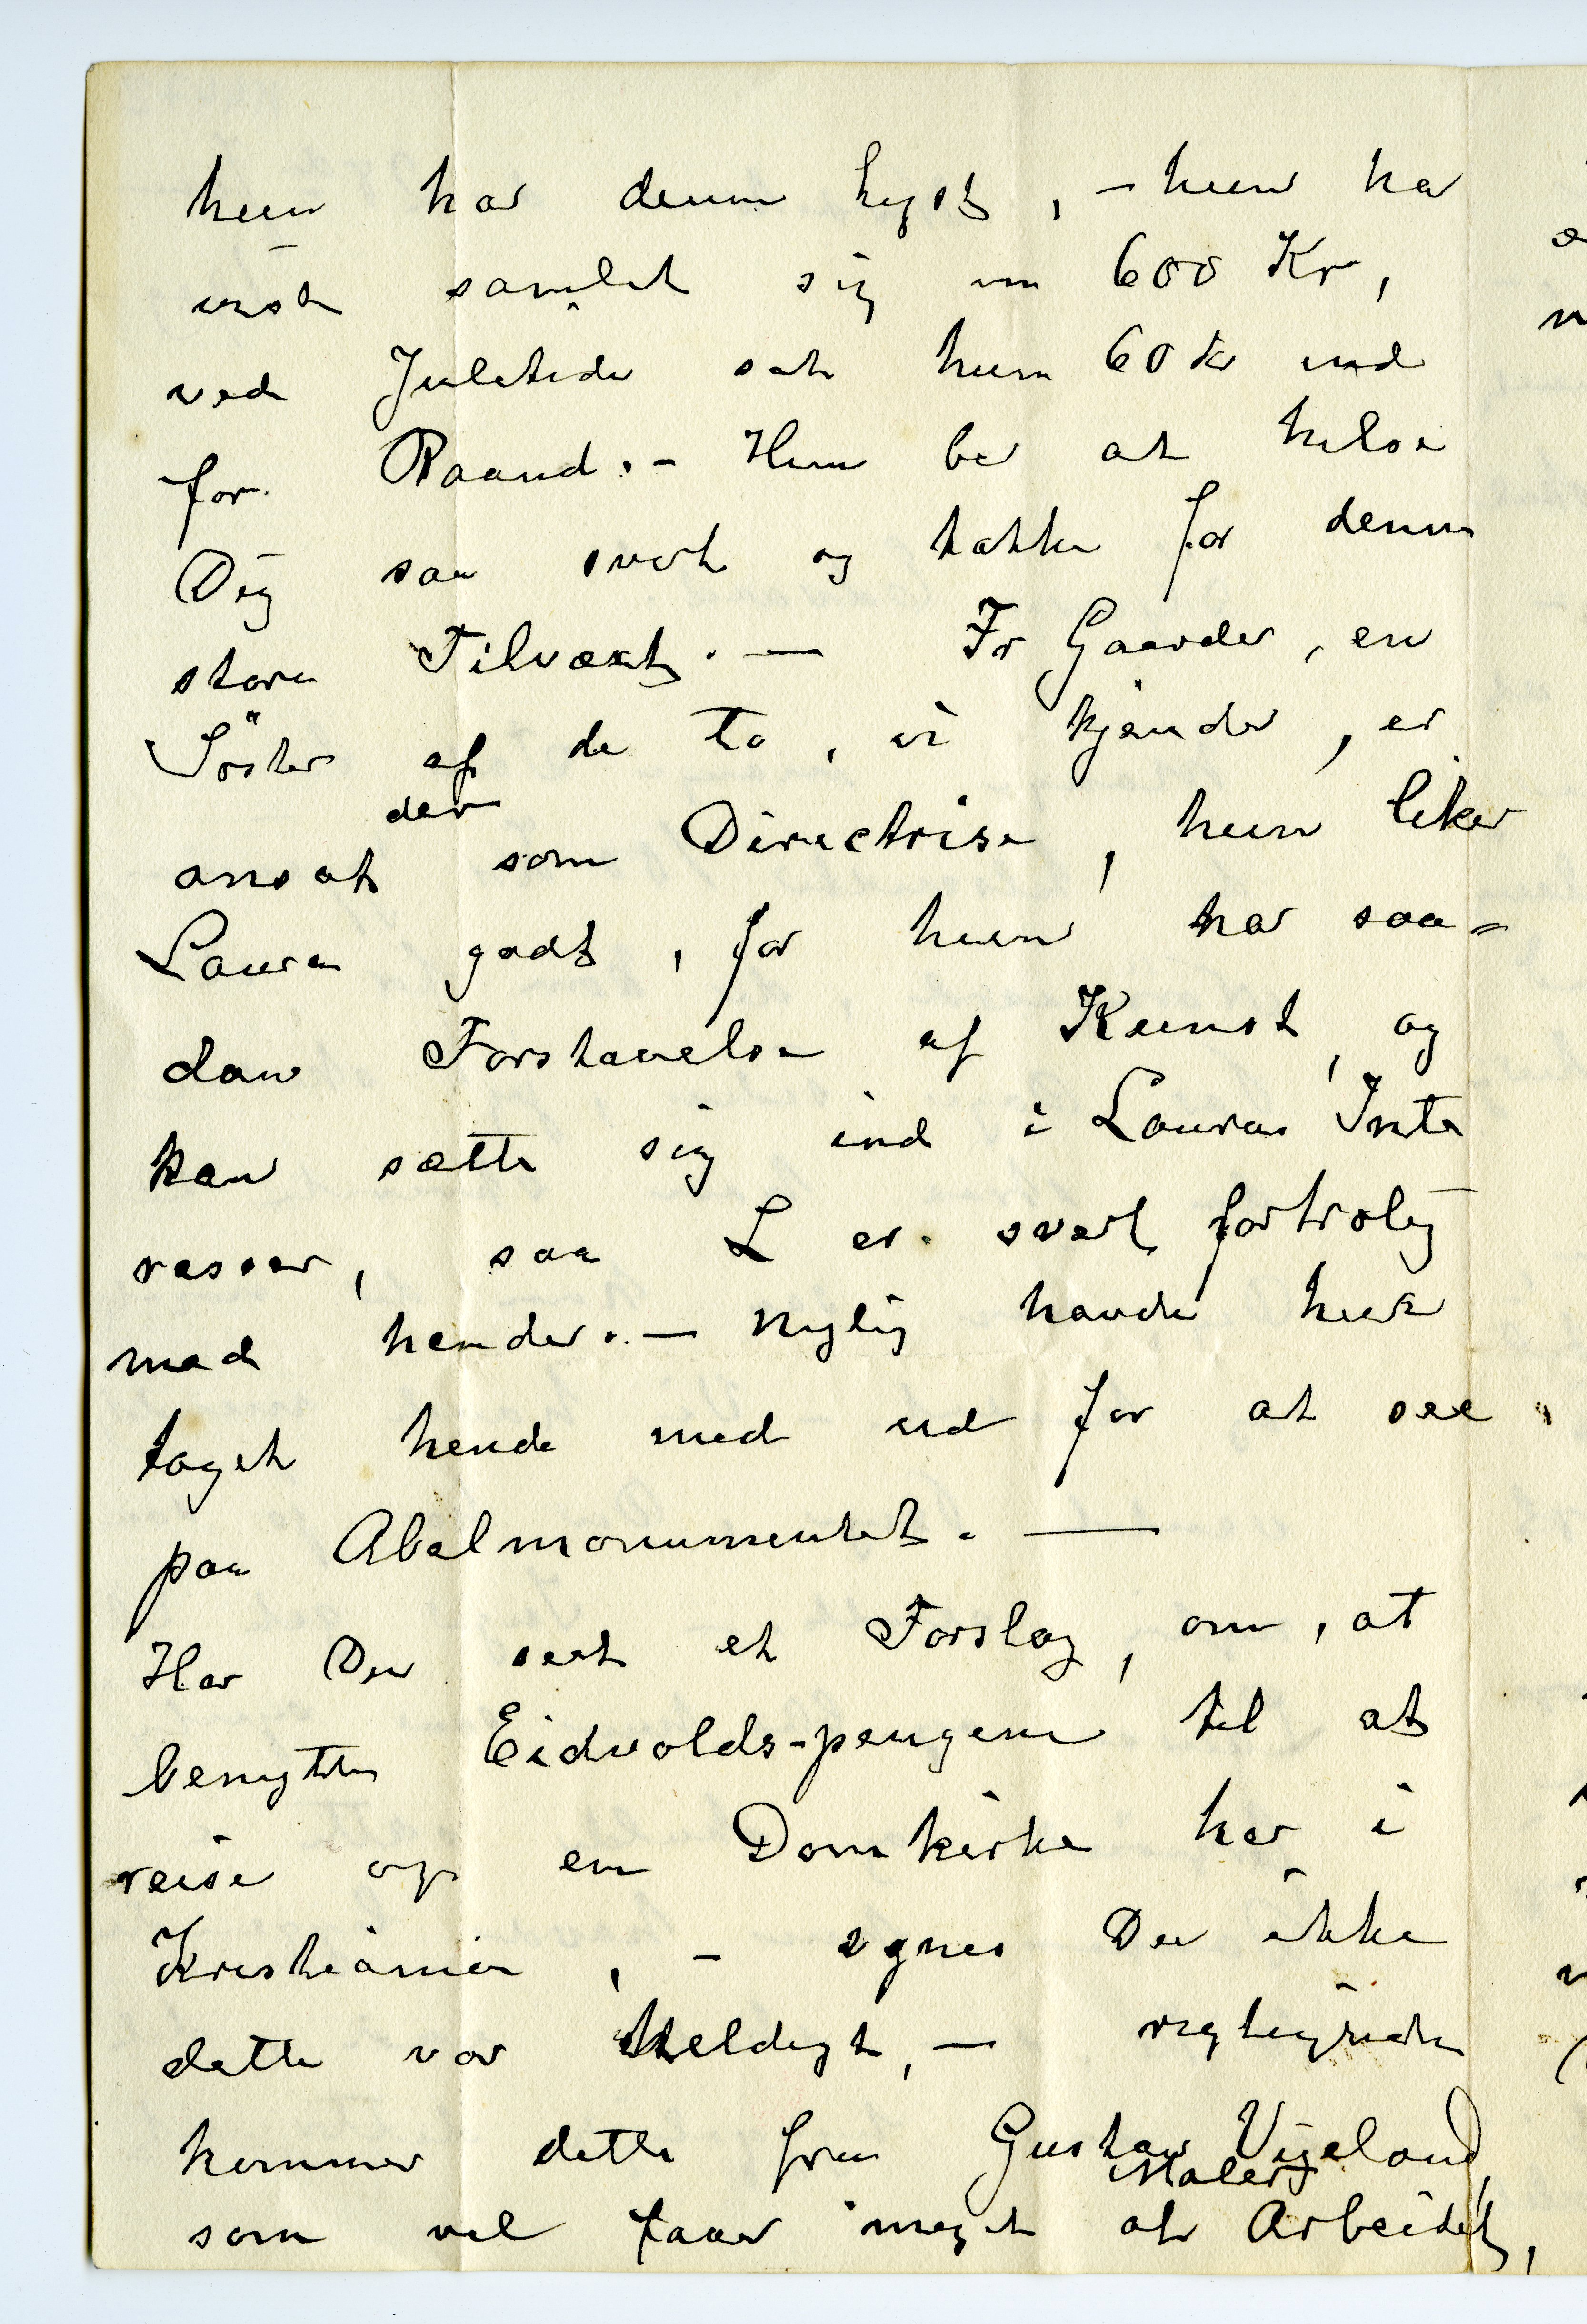 hun har denne Lyst, – hun har
vist samlet sig en 600 Kr,
ved Juletider sat hun 60 Kr ind
for Raand. – Hun ber at hilse
Dig saa svert og takke for denne
store Tilvext. — Fr Gaarder, en
Söster af de to, vi kjender, er
ansat der som Directrise, hun liker
Laura godt, for hun har saa-
dan Forstaaelse af Kunst, og
kan sætte sig ind i Lauras Inte
resser, saa L er svert fortrolig
med hende. – Nylig havde hun
taget hende med ud for at see
paa Abelmonumentet. —
Har Du seet et Forslag, om, at
benytte Eidvolds-pengene til at
reise op en Domkirke her i
Kristiania, – synes Du ikke
dette var heldigt, –
kommer dette fra Gustav Vigeland,
Maler
som vel faaer meget at Arbeidet,